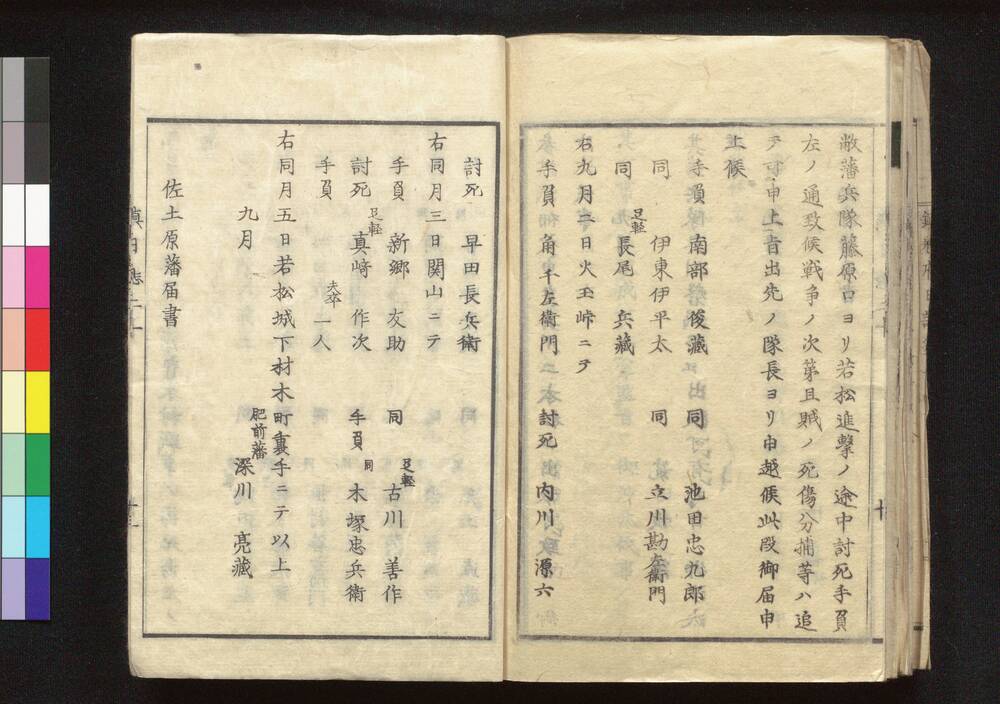 敝藩兵隊藤原口ヨリ若松進撃ノ途中討死手負
左ノ通致候戦争ノ次第且賊ノ死傷分捕等ハ追
テ可申上旨出先ノ隊長ヨリ申越候此段御届申
上候
手負 南部俊藏 同 池田忠九郎
同 伊東伊平太 同 立川勘左衛門
同 足軽 長尾兵藏
右九月二日火玉峠ニテ
手負 角千左衛門 討死 内川源六
討死 早田長兵衛
右同月三日関山ニテ
手負 新郷友助 同 足軽 古川善作
討死 足軽 真﨑作次 手負 同 木塚忠兵衛
手負 夫卒 一人
右同月五日若松城下材木町裏手ニテ以上
九月 肥前藩 深川亮藏
佐土原藩届書